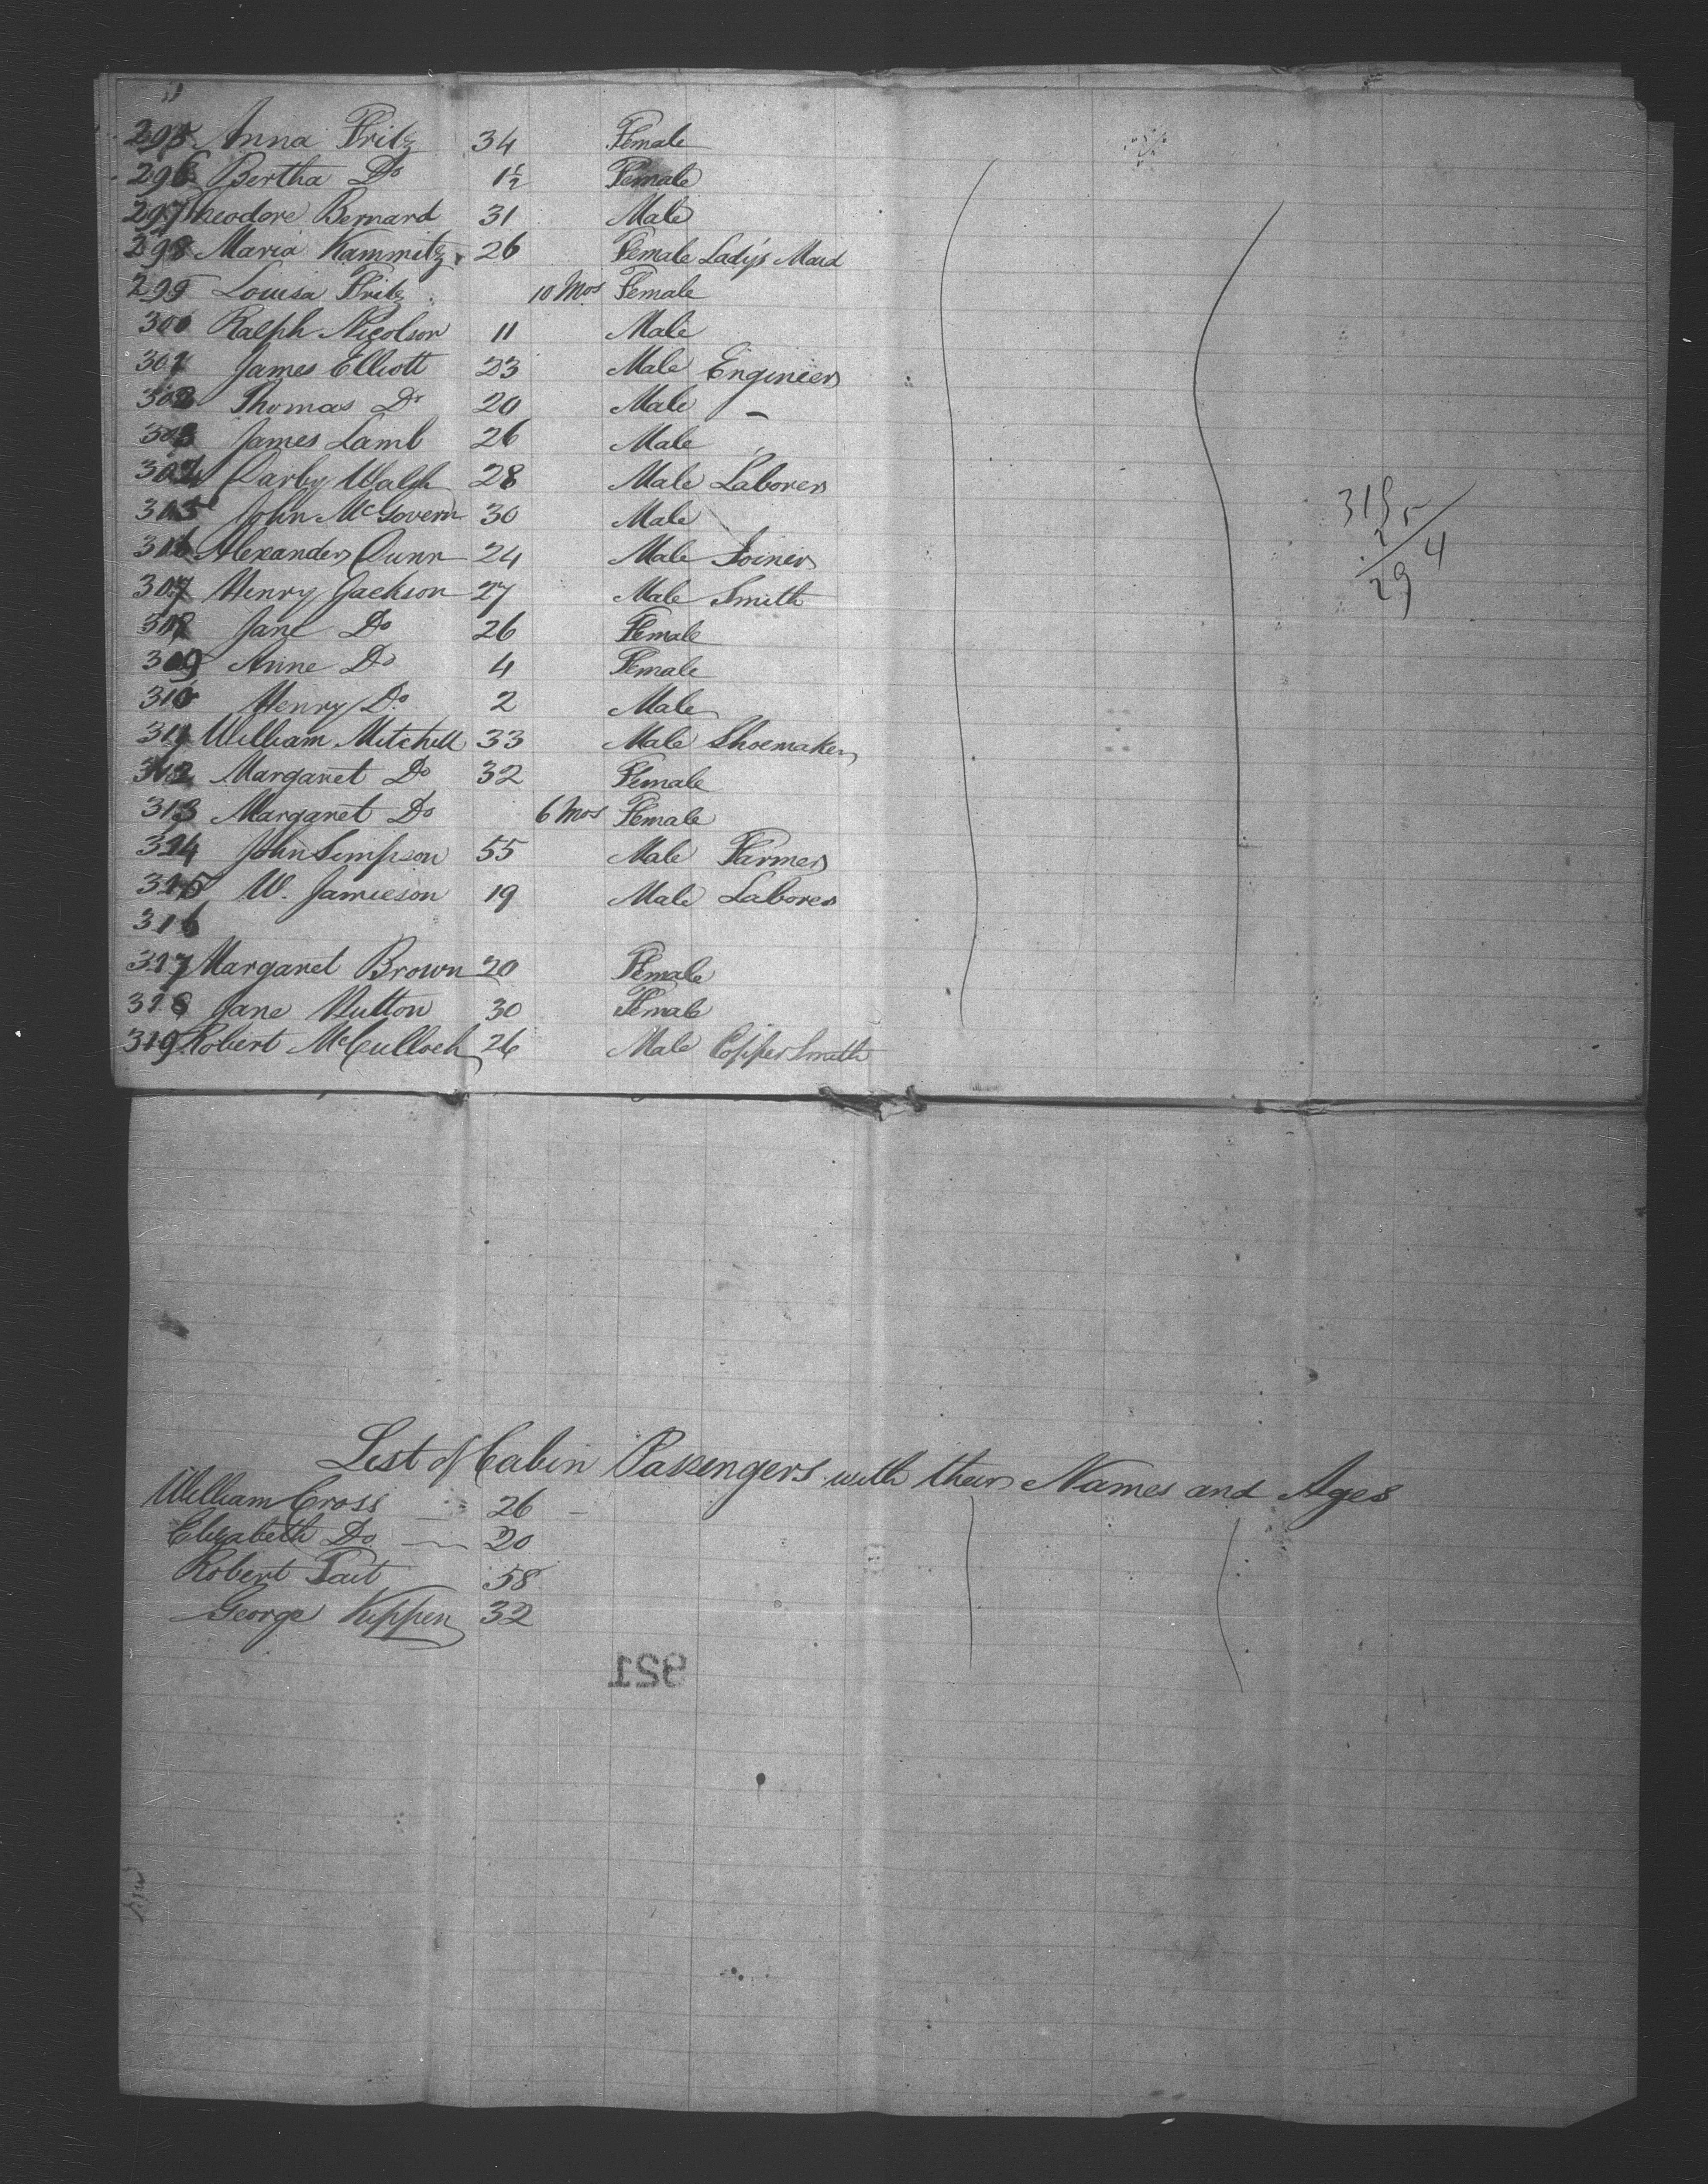 295 Anna Fritz 34 Female
296 Bertha Do 1½ Female
297 Theodore Bernard 31 Male
298 Maria Kammitz 26 Female Lady's Maid
299 Louisa Fritz 10 Mos Female
300 Ralph Nicolson 11 Male
301 James Elliott 23 Male Engineer
302 Thomas Do 20 Male –
303 James Lamb 26 Male
304 Darby Walsh 28 Male Laborer
305 John McGovern 30 Male
306 Alexander Dunn 24 Male Joiner
307 Henry Jackson 27 Male Smith
308 Jane Do 26 Female
309 Anne Do 4 Female
310 Henry Do 2 Male
311 William Mitchell 33 Male Shoemaker
312 Margaret Do 32 Female
313 Margaret Do 6 Mos Female
314 John Simpson 55 Male Farmer
315 W. Jamieson 19 Male Laborer
316
317 Margaret Brown 20 Female
318 Jane Hutton 30 Female
319 Robert McCulloch 26 Male Copper Smith
List of Cabin Passengers with their Names and Ages
William Cross 26
Elizabeth Do 20
Robert Tait 58
George Kippen 32
921